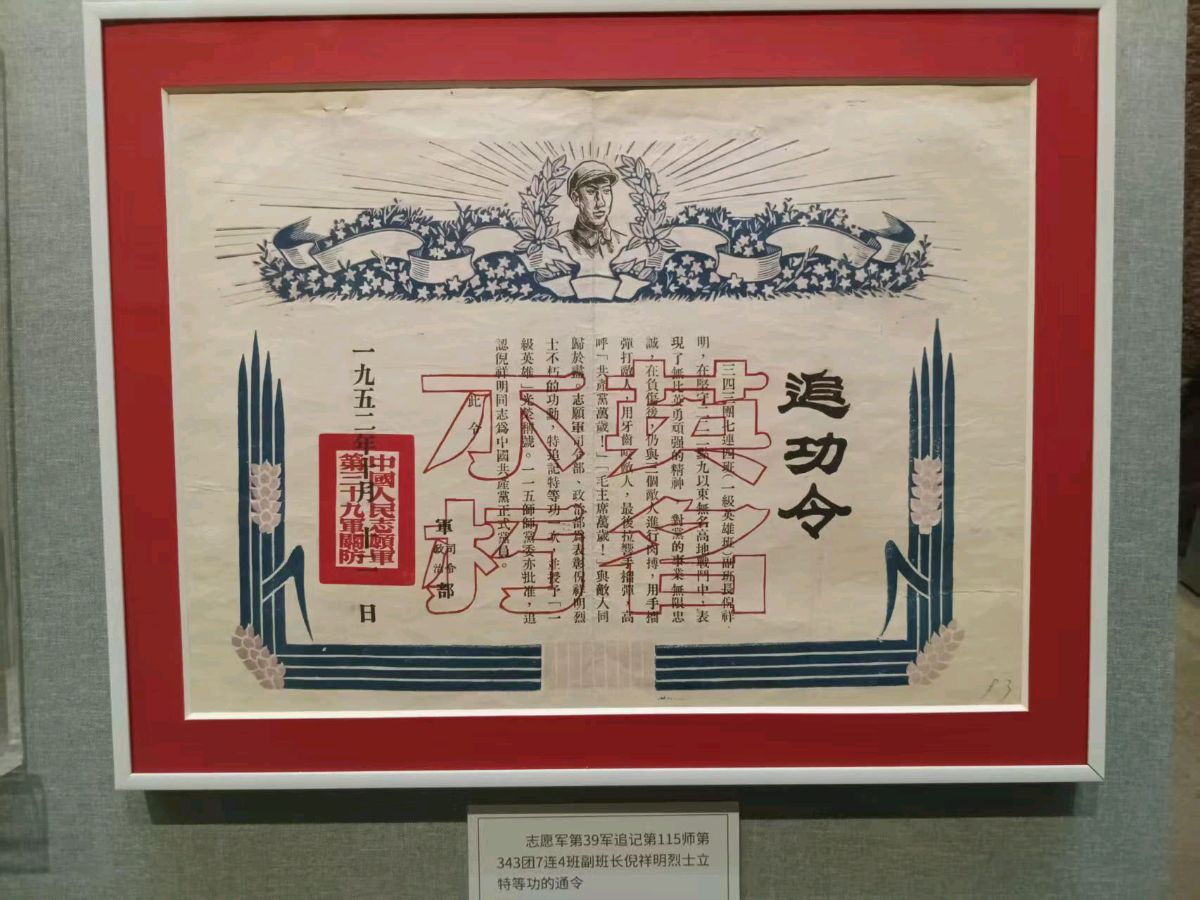 追功令
英名不朽
三四三團七連四班（一級英雄班）副班長倪祥
明，在堅守二二二點九以東無名高地戰鬥中，表
現了無比英勇頑强的精神 對黨的事業無限忠
誠，在負傷後，仍與三個敵人進行肉搏，用手擂
彈打敵人，用牙齒咬敵人，最後拉響手擂彈，高
呼「共產黨萬歲！」「毛主席萬歲！」與敵人同
歸於盡。志願軍司令部、政治部爲表彰倪祥明烈
士不朽的功勳，特追記特等功一次，並授予「一
級英雄」光榮稱號。一一五師師黨委亦批准，追
認倪祥明同志爲中國共產黨正式黨員。
此令
軍司令政治部
一九五二年十月十一日
中國人民志願軍
第三十九軍關防
83
志愿军第39军追记第115师第
343团7连4班副班长倪祥明烈士立
特等功的通令